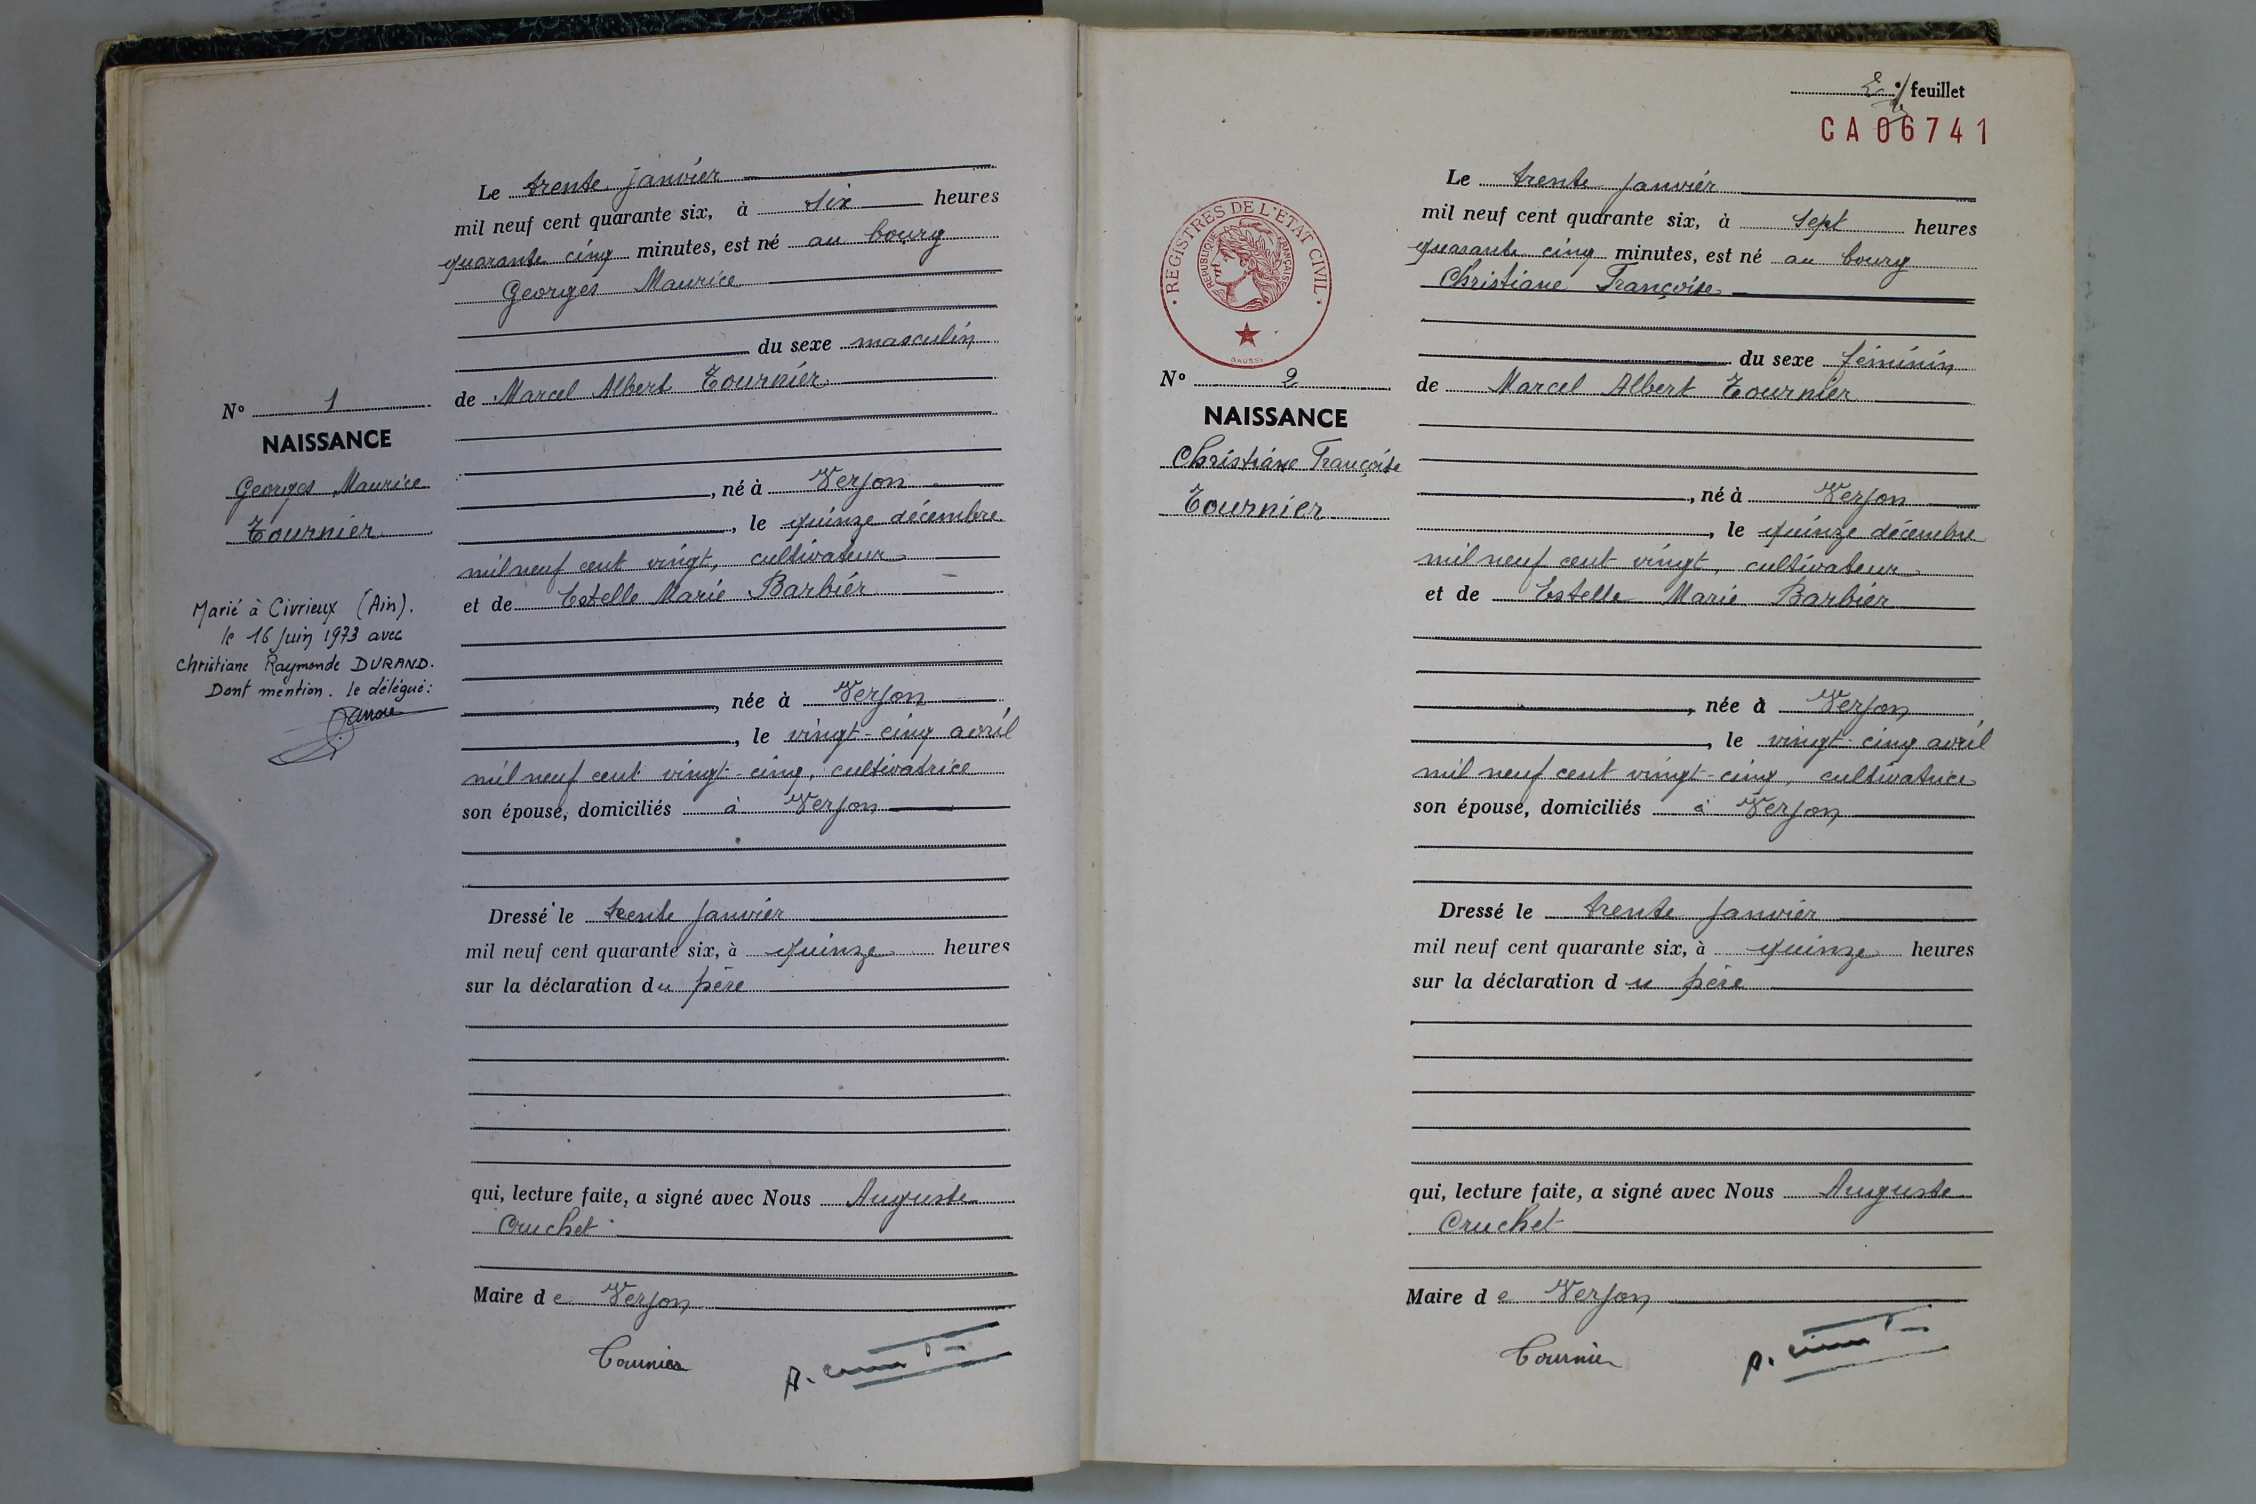 Le trente janvier
mil neuf cent quarante six, à six heures
quarante cinq minutes, est né au bourg
Georges Maurice
du sexe masculin
de Marcel Albert Tournier
, né à Verjon
, le quinze décembre
mil neuf cent vingt, cultivateur
et de Estelle Marie Barbier
, née à Verjon
, le vingt-cinq avril
mil neuf cent vingt-cinq, cultivatrice
son épouse, domiciliés à Verjon
Dressé le trente janvier
mil neuf cent quarante six, à quinze heures
sur la déclaration du père
qui, lecture faite, a signé avec Nous Auguste
Cruchet
Maire de Verjon
Tournier
N° 1
NAISSANCE
Georges Maurice
Tournier
Marié à Civrieux (Ain).
le 16 Juin 1973 avec
Christiane Raymonde DURAND.
Dont mention. le délégué:
2e feuillet
CA 06741
Le trente janvier
mil neuf cent quarante six, à sept heures
quarante cinq minutes, est né au bourg
Christiane Françoise
du sexe féminin
de Marcel Albert Tournier
, né à Verjon
, le quinze décembre
mil neuf cent vingt, cultivateur
et de Estelle Marie Barbier
, née à Verjon
, le vingt-cinq avril
mil neuf cent vingt-cinq, cultivatrice
son épouse, domiciliés à Verjon
Dressé le trente janvier
mil neuf cent quarante six, à quinze heures
sur la déclaration du père
qui, lecture faite, a signé avec Nous Auguste
Cruchet
Maire de Verjon
Tournier
REGISTRES DE L'ETAT CIVIL
REPUBLIQUE FRANÇAISE
N° 2
NAISSANCE
Christiane Françoise
Tournier